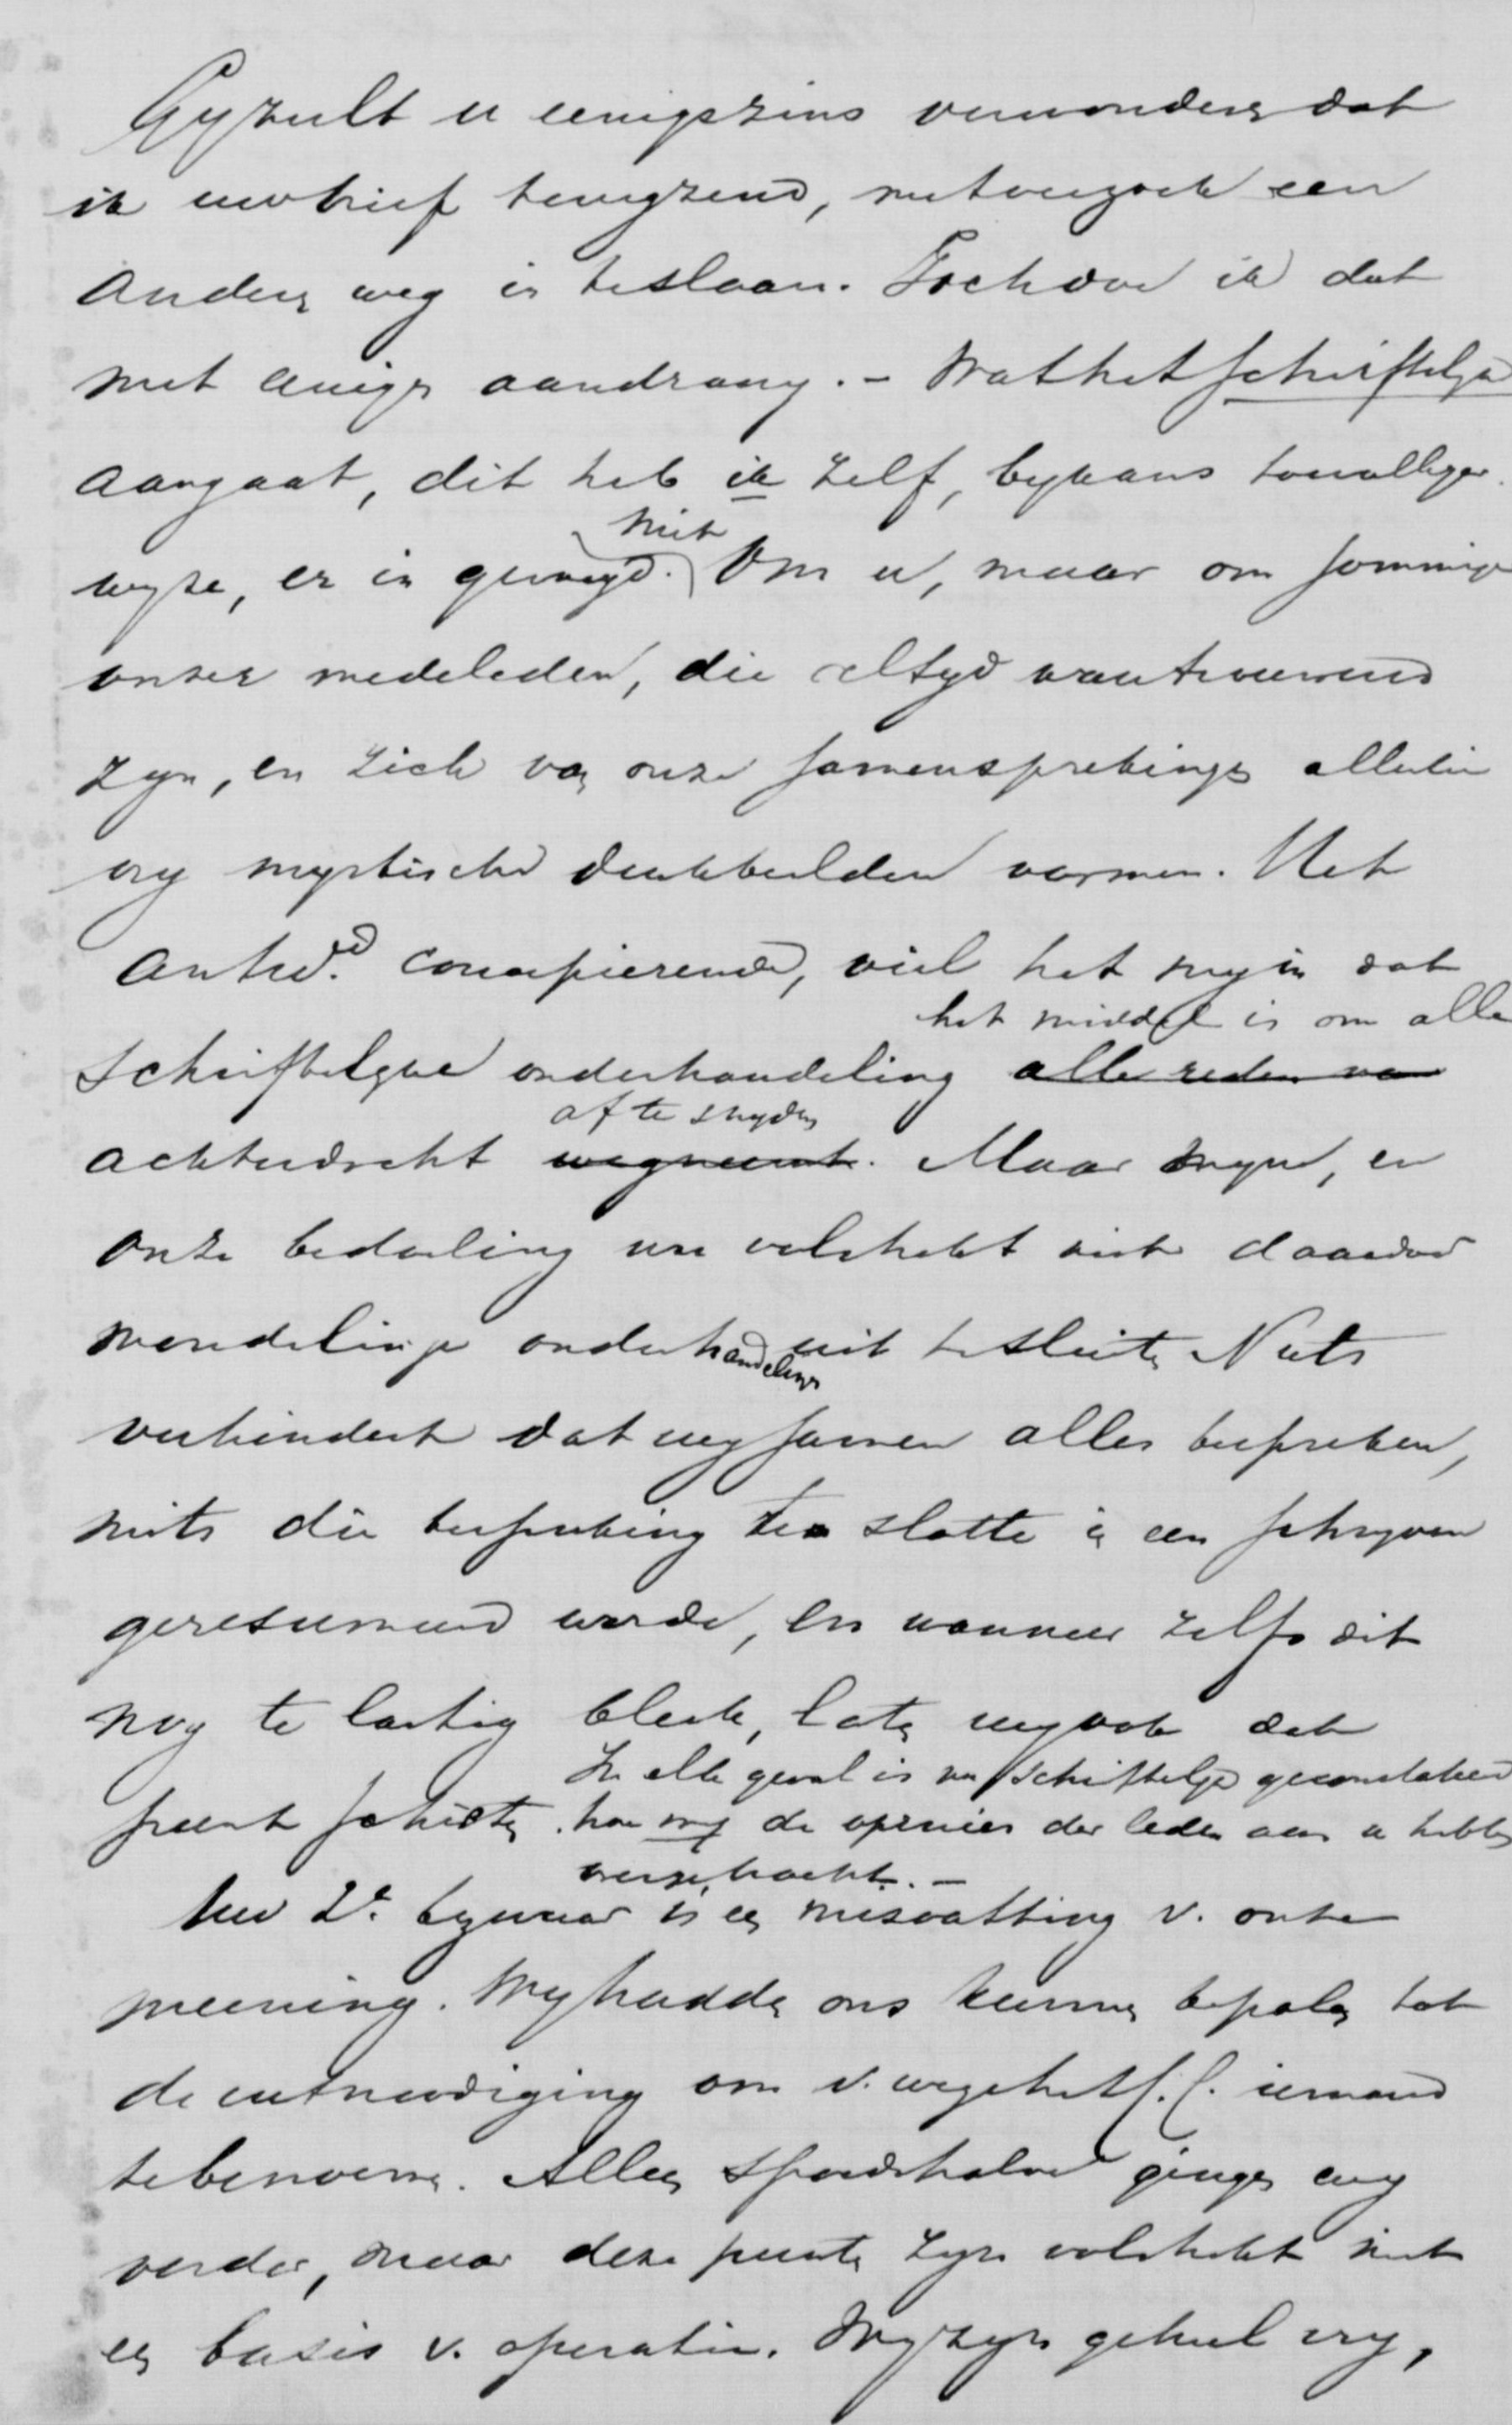 Gy zult u eenigszins verwonderen dat
ik uw brief terugzend, met verzoek een
anderen weg in te slaan. Toch doe ik dat
met eenigen aandrang. - Wat het schriftelyke
aangaat, dit heb ik zelf, bykans toevalliger
wyze, er in gevoegd. Niet om u, maar om sommige
onzer medeleden, die altyd wantrouwend
zyn, en zich van onze samensprekingen allerlei
mystische denkbeelden vormen. Het
antwd. concipierende, viel het my in dat
schriftelyke onderhandeling alle reden van het middel is om alle
achterdocht wegneemt. af te snyden Maar myne, en
onze bedoeling was volstrekt niet daardoor
mondelinge onderhandelingen uit te sluiten. Niets
verhindert dat wy samen alles bespreken,
mits die bespreking ten slotte in een schryven
geresumeerd worde, en wanneer zelfs dit
nog te lastig bleek, laten wy ook dat
punt schieten. In elk geval is nu schriftelyk geconstateerd
hoe wy de opinies der leden aan u hebben
overgebracht. -
Uw 2e. bezwaar is een misvatting v. onze
meening. Wy hadden ons kunnen bepalen tot
de uitnoodiging om v. wege het C.C. iemand
te benoemen. Alleen spoedshalve gingen wy
verder, maar deze punten zyn volstrekt niet
een basis v. operatie. Wy zyn geheel vry,